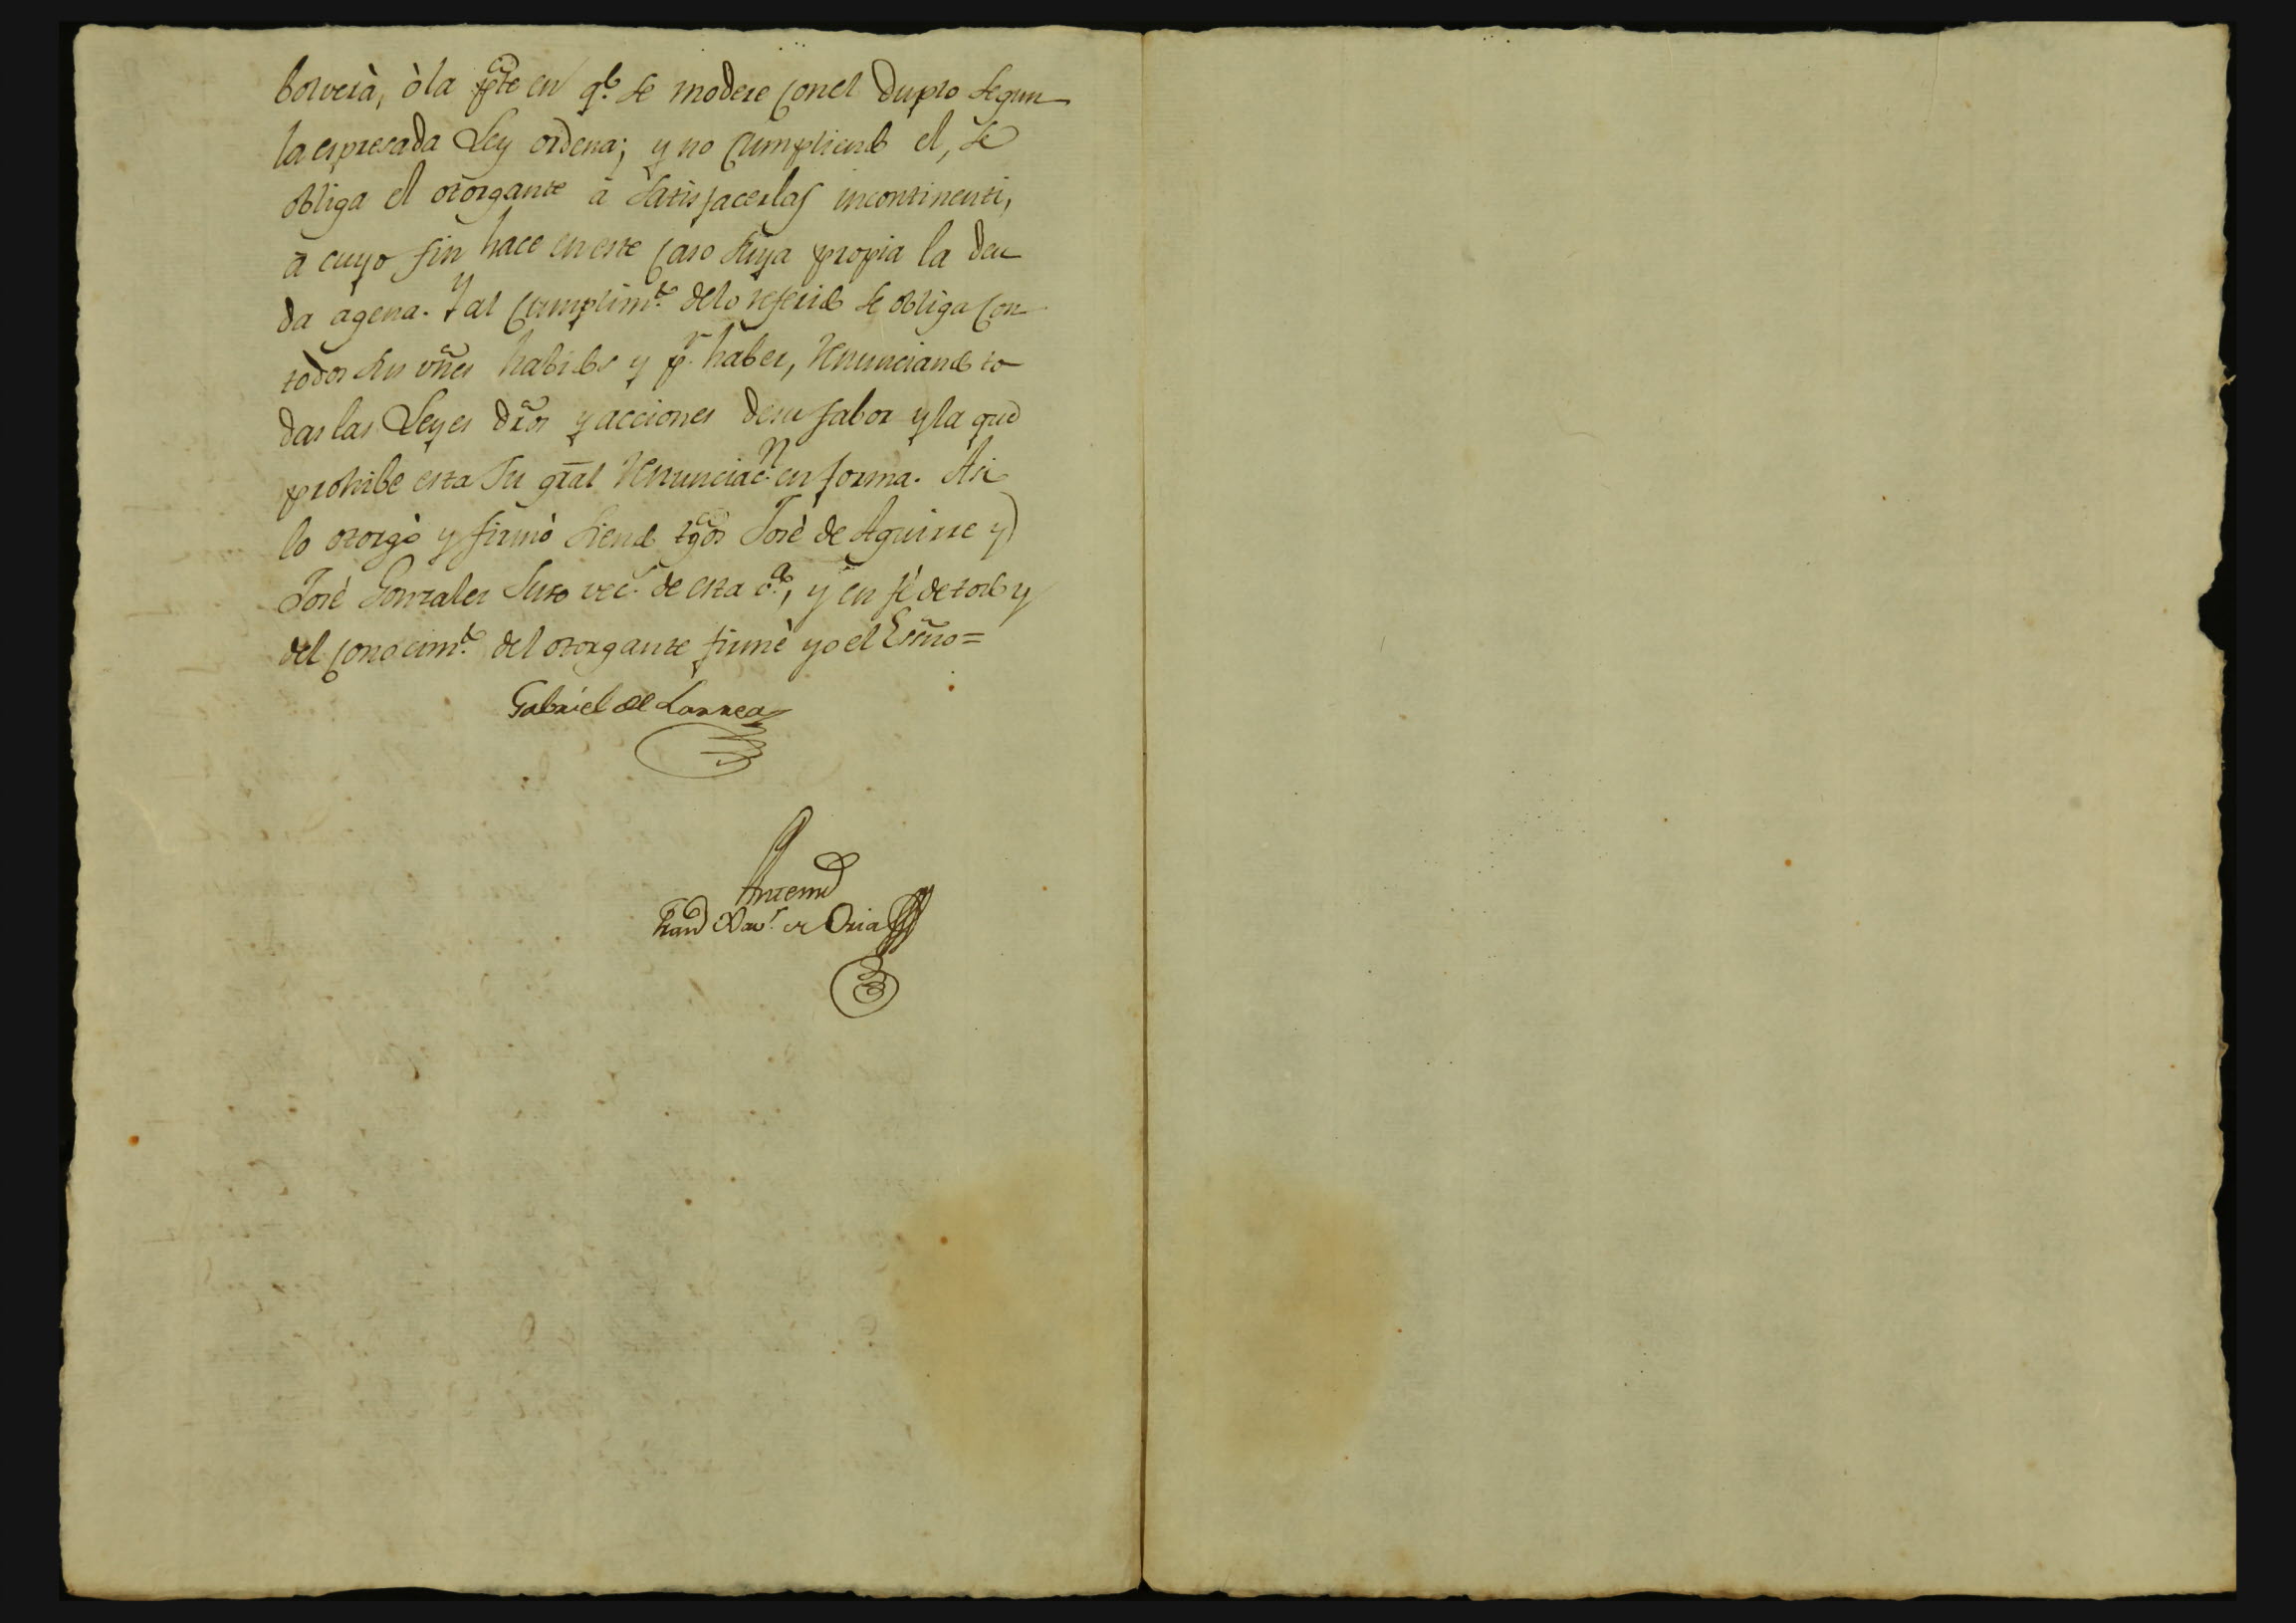 bolverà, ò la pte en q.e se modere con el duplo segun
la espresada Ley ordena; y no cumpliendo el, se
obliga el otorgante à satisfacerlas incontinenti,
à cuyo fin hace en este caso suya propia la deu
da agena. Y al cumplim.to de lo referido se obliga con
todos sus vnes habidos y p.r haber, renunciando to
das las Leyes dros y acciones de su fabor y la que
prohibe esta su gral renunciac.n en forma. Asi
lo otorgò y firmò siendo tgos Josè de Aguirre y
Josè Gonzales vec.s de esta c.d, y en fé de todo y
del conocim.to del otorgante firmè yo el Esno=
Gabriel de Larrea
Antemi
Xav.r de Oria